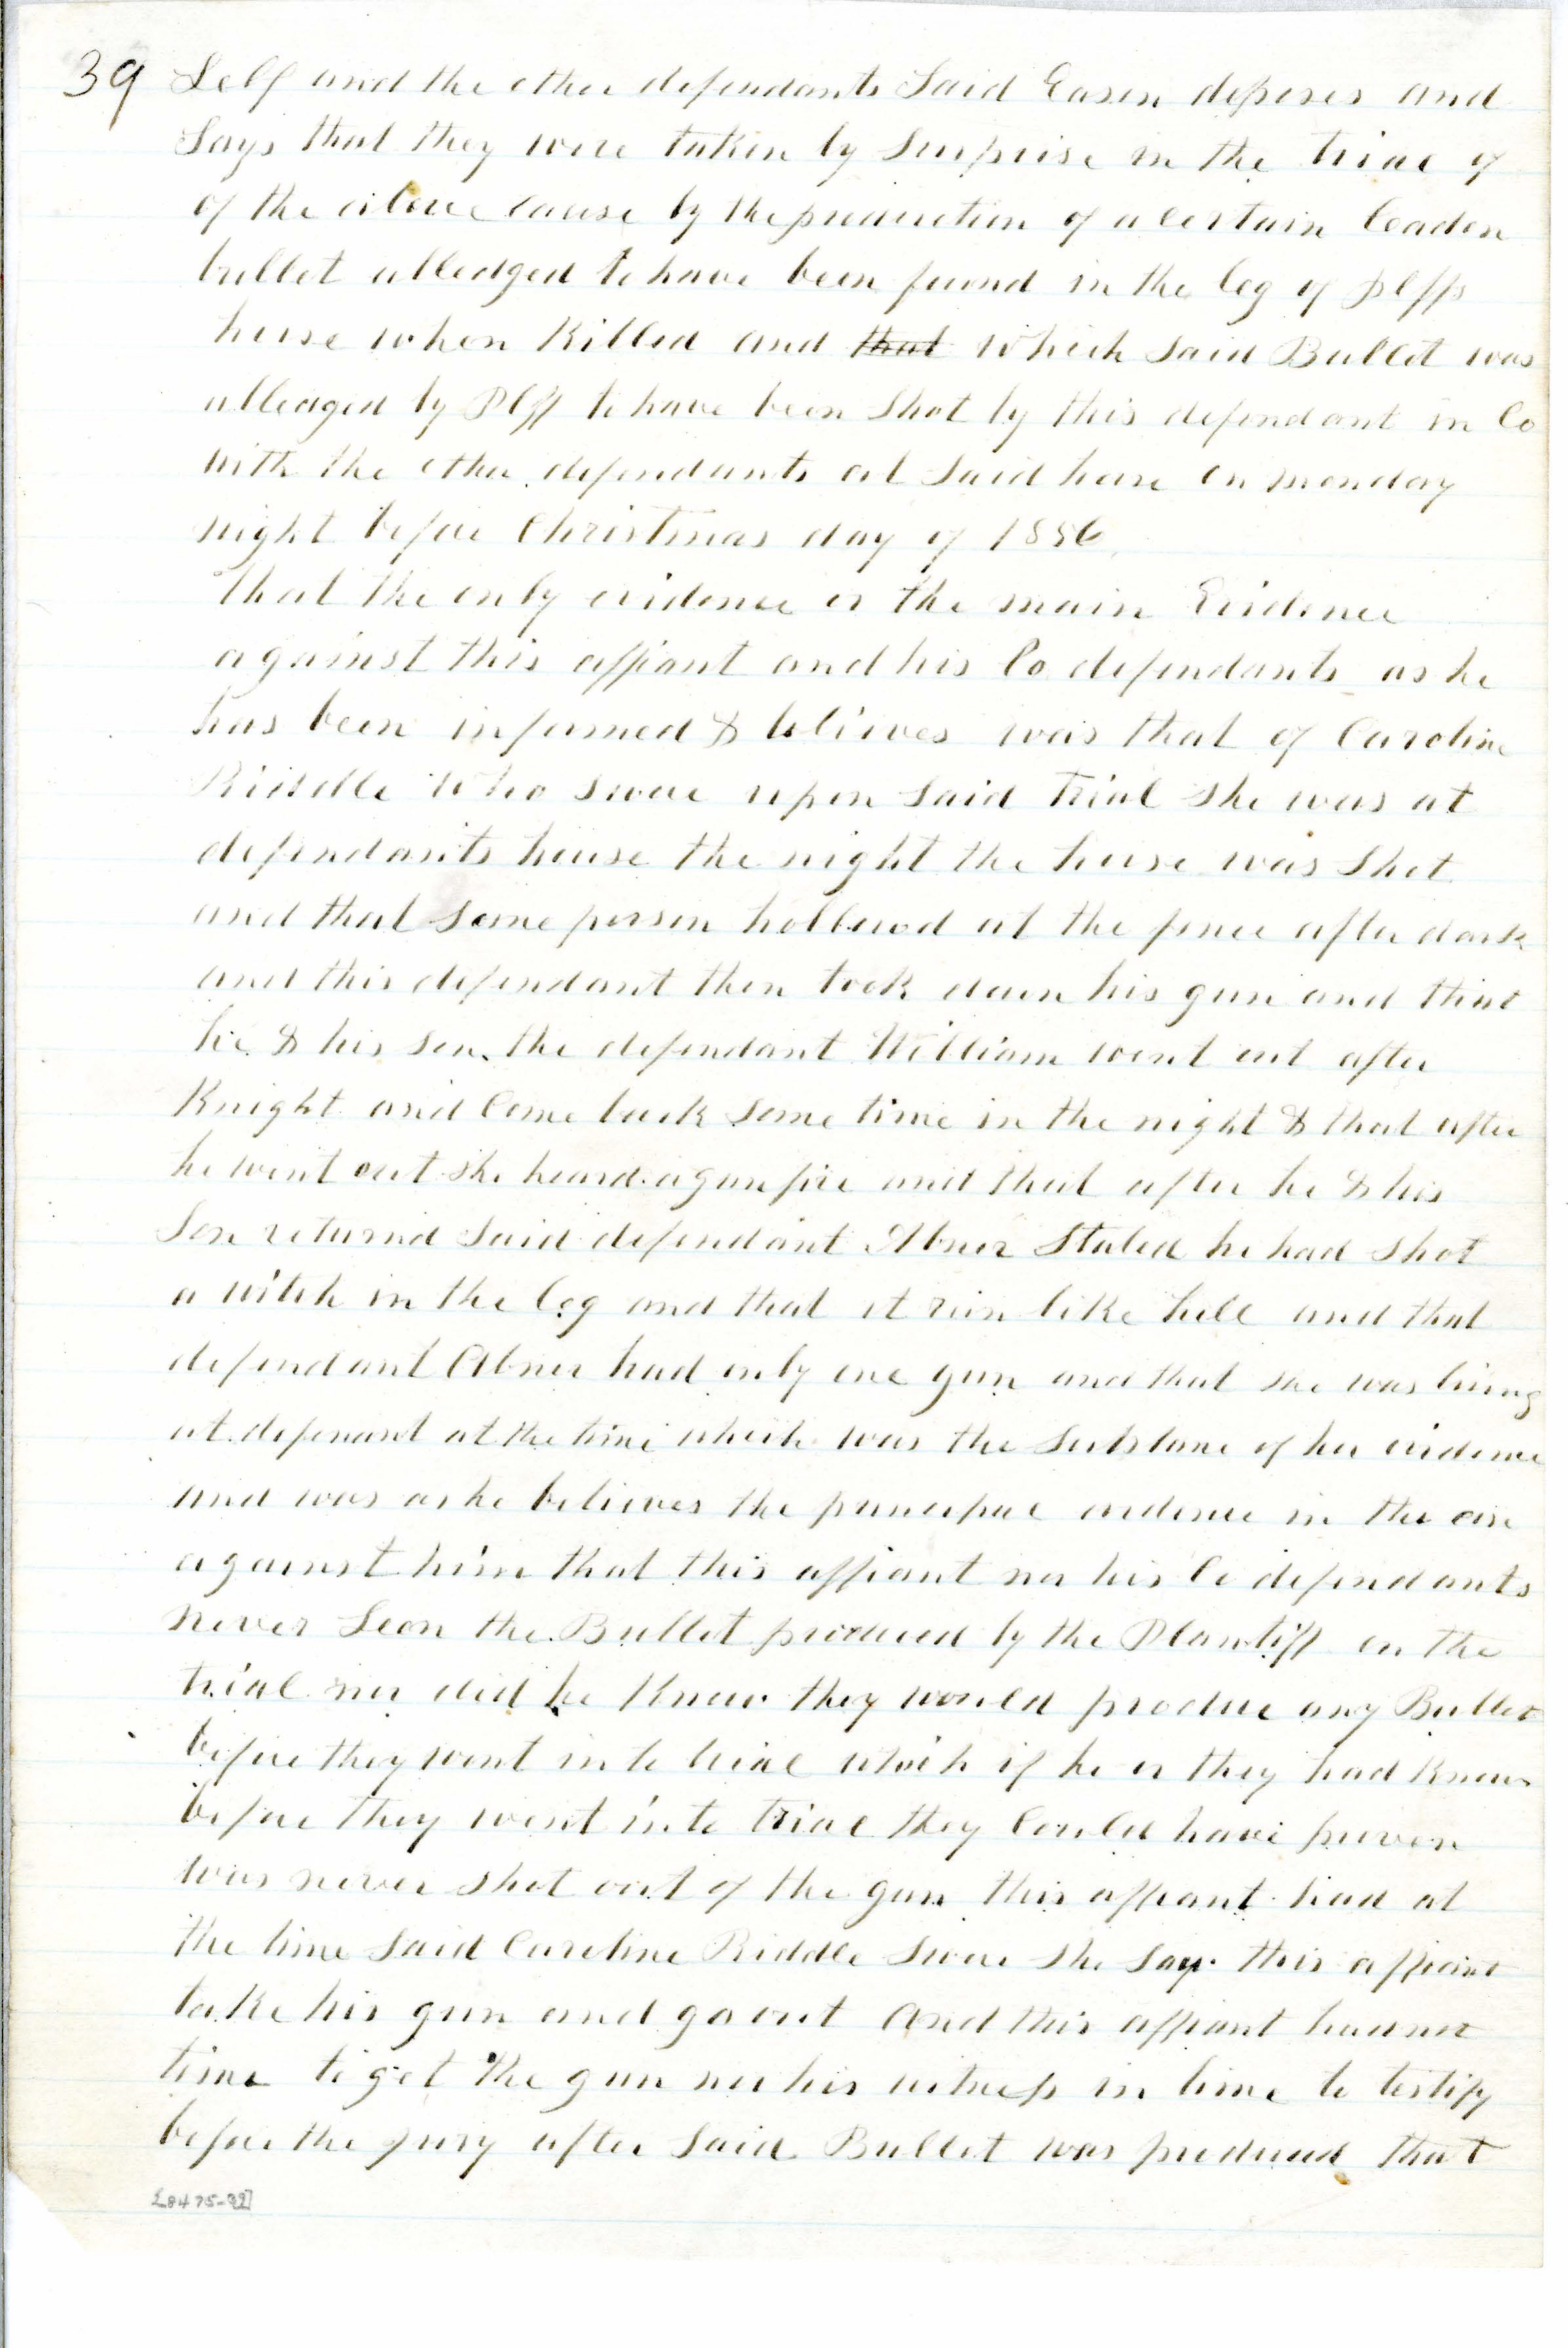 39 Self and the other defendants Said Eason deposes and
Says that they were taken by Surprise in the trial of
of the above cause by the production of a certain leaden
bullet alledged to have been found in the leg of Plffs
horse when Killed and that which Said Bullet was
alledged by Plff to have been Shot by this defendant in Co
with the other defendants at Said horse on monday
night before Christmas day of 1856
that the only evidence or the main Evidence
against this affiant and his Co defendants as he
has been informed & believes was that of Caroline
Riddle who swore upon Said trial She was at
defendants house the night the horse was Shot
and that Some person hollowed at the fence after dark
and this defendant then took down his gun and that
he & his son the defendant William went out after
Knight and Come back Some time in the night & that after
he went out she heard a gun fire and that after he & his
Son returnd Said defendant Abner Stated he had Shot
a witch in the leg and that it run like hell and that
defendant Abner had only one gun and that she was living
at defenant at the time which was the Substane of her evidence
and was as he believes the principal evidence in the case
against him that this affiant nor his Co defendants
never Seen the Bullet produced by the Plantiff on the
trial nor did he Know they would produce any Bullet
before they went in to trial which if he or they had Known
before they went into trial they Could have proven
was never Shot out of the gun this affiant had at
the time Said Caroline Riddle Swore She Say this affiant
take his gun and go out And this affiant had not
time to get the gun nor his witness in time to testify
before the jury after Said Bullet was produced that
[8475-39]